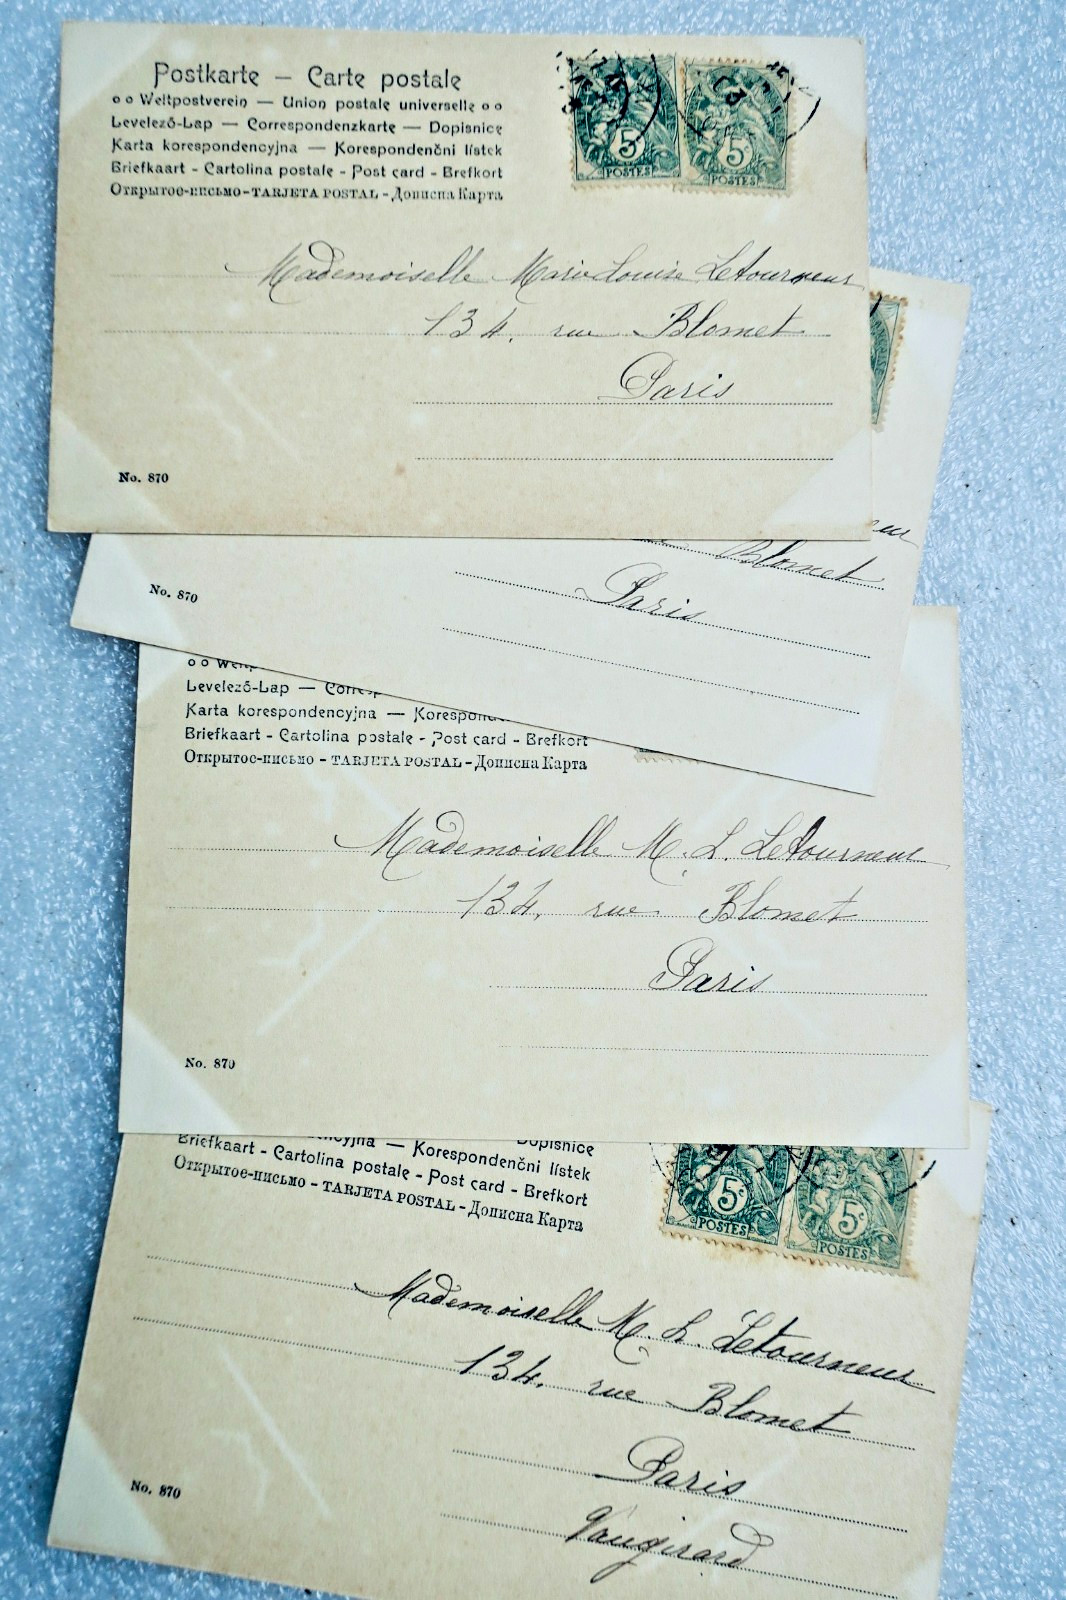 Postkarte — Carte postale
Weltpostverein — Union postale universelle
Levelező-Lap — Correspondenzkarte — Dopisnice
Karta korespondencyjna — Korespondenční lístek
Briefkaart - Cartolina postale - Post card - Brefkort
Открытое-письмо - TARJETA POSTAL - Дописна Карта
5c 5c
POSTES POSTES
Mademoiselle Marie Louise Letourneur
134, rue Blomet
Paris
No. 870
eur
Blomet
Paris
No. 870
Levelező-Lap —
Karta korespondencyjna —
Briefkaart - Cartolina postale - Post card - Brefkort
Открытое-письмо - TARJETA POSTAL - Дописна Карта
Mademoiselle M. L. Letourneur
134, rue Blomet
Paris
No. 870
cyjna — Korespondenční lístek
Dopisnice
Briefkaart - Cartolina postale - Post card - Brefkort
Открытое-письмо - TARJETA POSTAL - Дописна Карта
5c 5c
POSTES POSTES
Mademoiselle M. L. Letourneur
134, rue Blomet
Paris
Vaugirard
No. 870